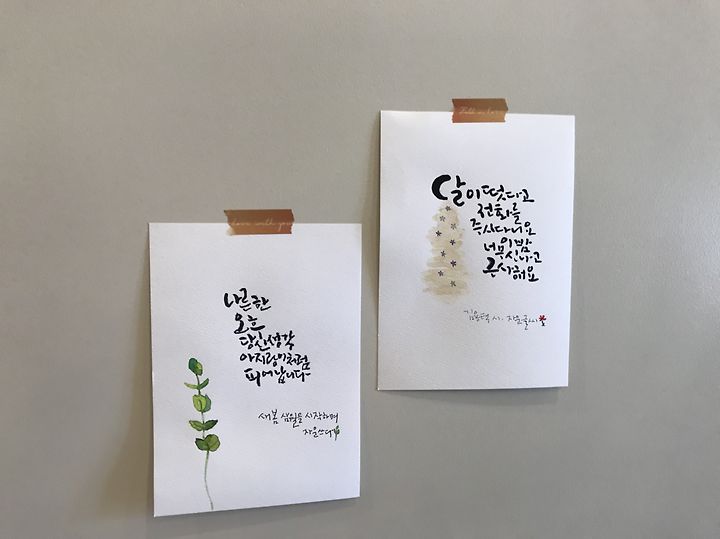 나른한
오후
당신생각
아지랑이처럼
피어납니다~
새봄 삼월을 시작하며
자운쓰다
달이떴다고
전화를
주시다니요
이밤
너무 신나고
근사해요
김용택 시. 자운글씨